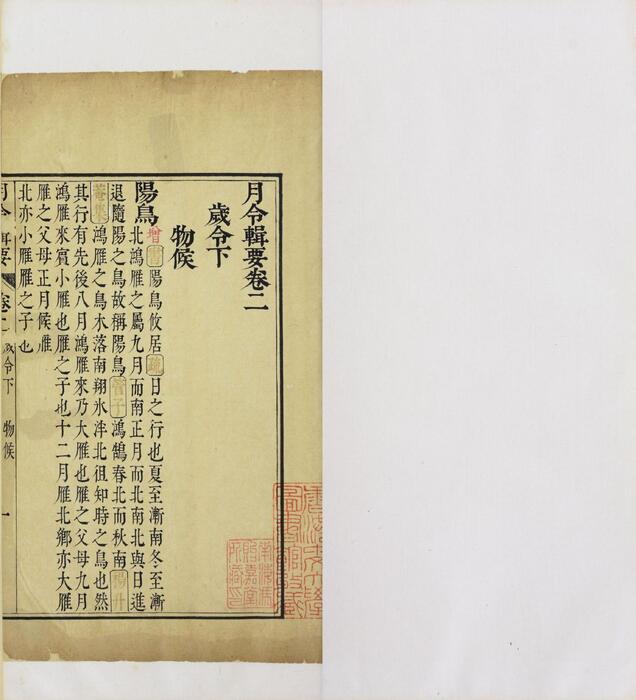 月令輯要卷二
歲令下
物候
陽鳥增書陽鳥攸居疏日之行也夏至漸南冬至漸
北鴻雁之屬九月而南正月而北南北與日進
退隨陽之鳥故稱陽鳥管子鴻鵠春北而秋南
菴集鴻雁之鳥木落南翔氷泮北徂知時之鳥也然
其行有先後八月鴻雁來乃大雁也雁之父母九月
鴻雁來賓小雁也雁之子也十二月雁北鄉亦大雁
雁之父母正月候雁
北亦小雁雁之子也
月令輯要 卷二 歲令下 物候 一